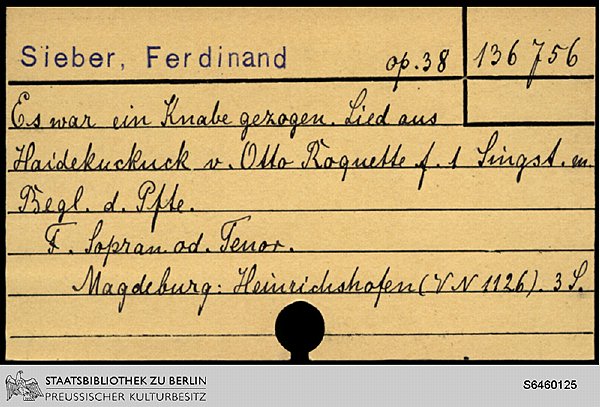 Sieber, Ferdinand op. 38 136 756
Es war ein Knabe gezogen. Lied aus
Haidekuckuck v. Otto Roquette f. 1 Singst. m.
Begl. d. Pfte.
F. Sopran od. Tenor.
Magdeburg: Heinrichshofen (VN 1126). 3 S.
STAATSBIBLIOTHEK ZU BERLIN
PREUSSISCHER KULTURBESITZ
S6460125